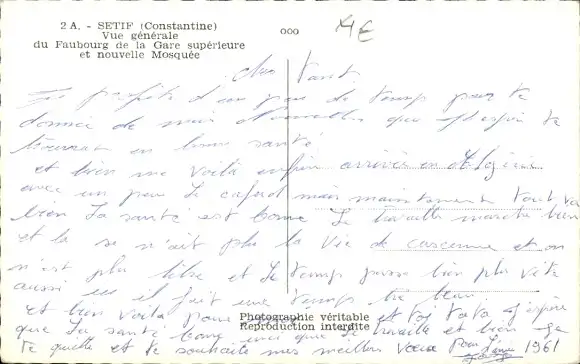 2 A. - SETIF (Constantine)
Vue générale
du Faubourg de la Gare supérieure
et nouvelle Mosquée
ooo
ME
Je profite d'un peu de temps pour te
donner de mes Nouvelles que j'espère te
trouvera en bonne santé
et bien me voilà enfin arrivée en Algérie
avec un peu le cafard mais maintenant tout va
bien La santé est bonne Le travaille marche bien
et la se n'ait plu la Vie de caserne et on
n'est plu libre et Le temps passe bien plu vite
aussi il fait une temps tre beau
et bien voilà pour et toi tata j'espère
que La santé bonne que Le travaille et bien ça
te quitte et te souhaite mes meilleur Vœux pour L'année 1961
Photographie véritable
Reproduction interdite